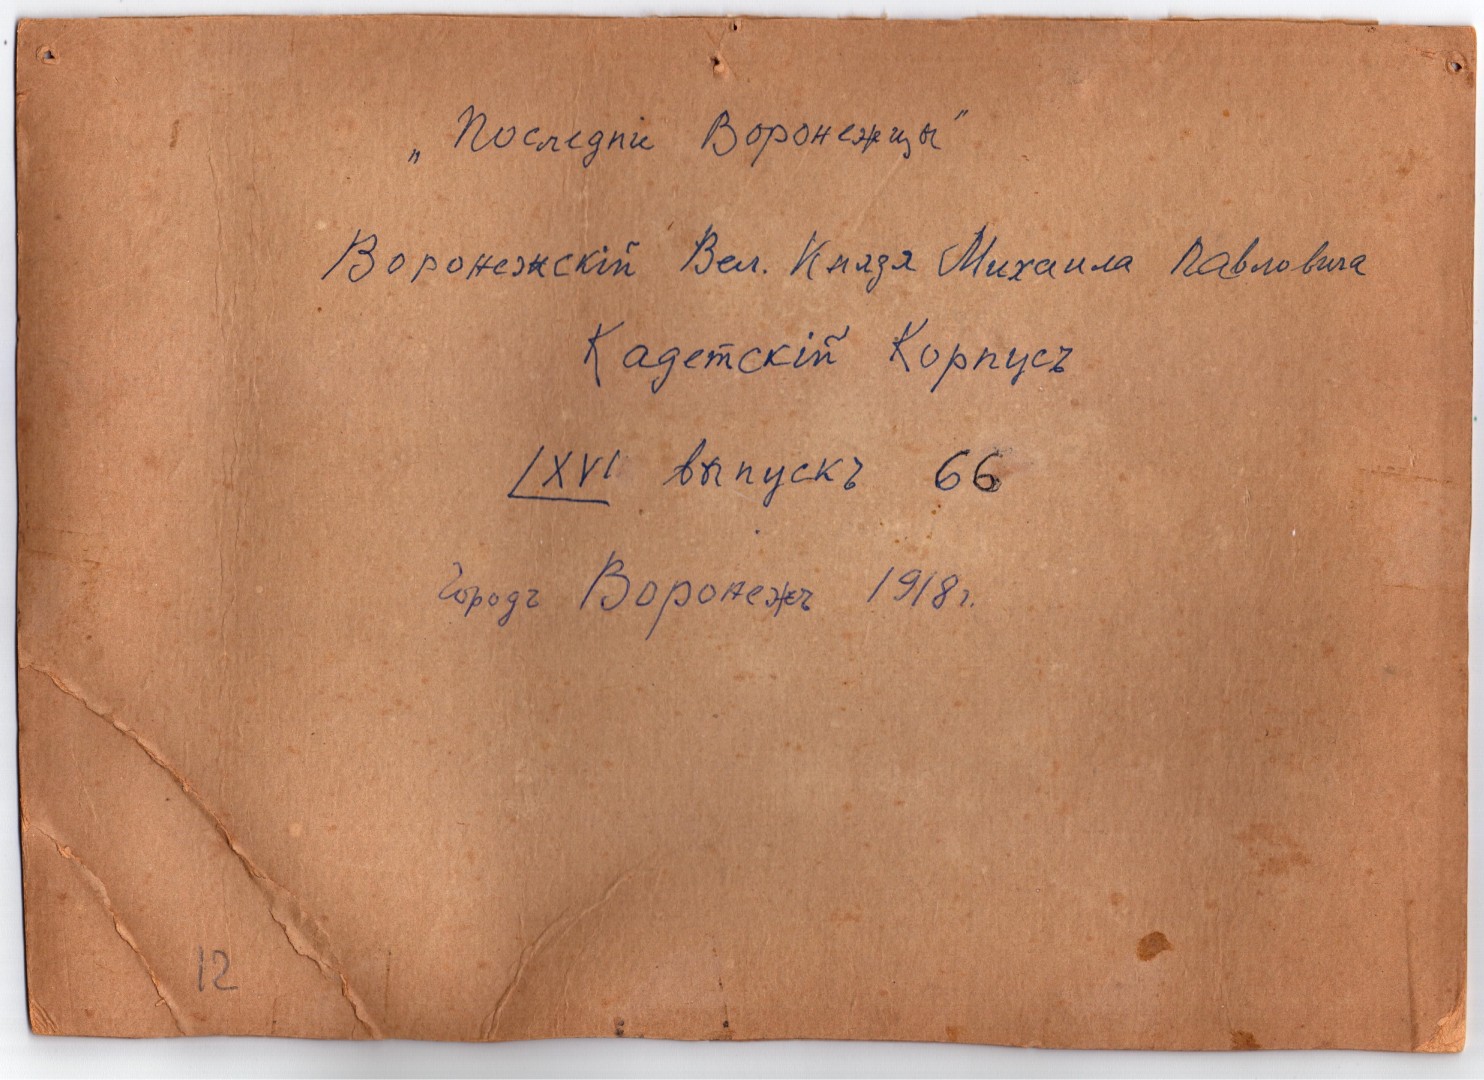 „Послѣднiе Воронежцы"
Воронежскiй Вел. Князя Михаила Павловича
Кадетскiй Корпусъ
LXVI выпускъ 66
Городъ Воронежъ 1918 г.
12